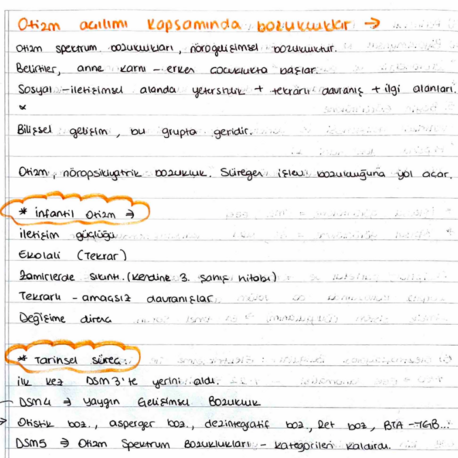 Otizm açılımı kapsamında bozukluklar →
Otizm spektrum bozuklukları, nörogelişimsel bozukluktur.
Belirtiler, anne karnı - erken çocuklukta başlar.
Sosyal - iletişimsel alanda yetersizlik + tekrarlı davranış + ilgi alanları.
*
Bilişsel gelişim, bu grupta geridir.
Otizm, nöropsikiyatrik bozukluk. Süregen işlev bozukluğuna yol açar.
* İnfantil Otizm →
İletişim güçlüğü
Ekolali (Tekrar)
Zamirlerde sıkıntı. (kendine 3. şahıs hitabı)
Tekrarlı - amaçsız davranışlar
Değişime direnç
* Tarihsel süreç:
İlk kez DSM 3'te yerini aldı.
DSM4 → Yaygın Gelişimsel Bozukluk
→ Otistik boz., asperger boz., dezintegratif boz., Ret boz., BTA - YGB...
DSM5 → Otizm Spektrum Bozuklukları - kategorileri kaldırdı.